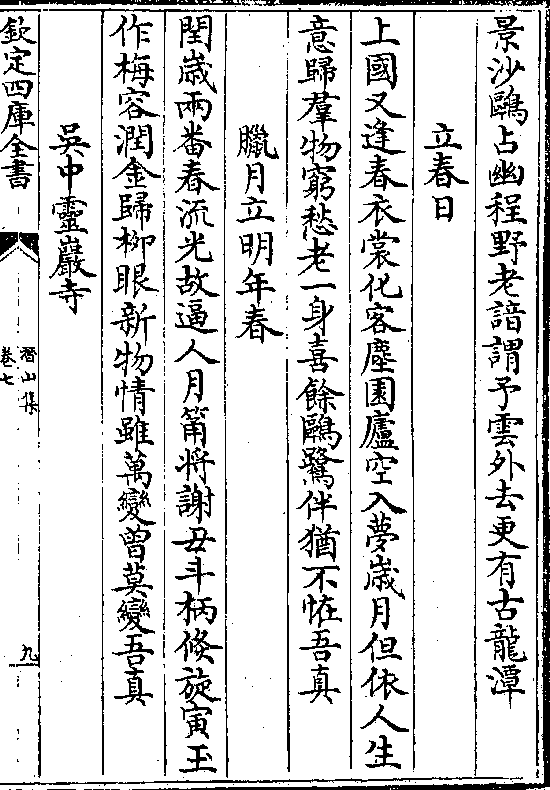 景沙鷗占幽程野老諳謂予雲外去更有古龍潭
立春日
上國又逢春衣裳化客塵園廬空入夢歲月但依人生
意歸羣物窮愁老一身喜餘鷗鷺伴猶不怪吾真
臘月立明年春
閏歲兩番春流光故逼人月筩將謝丑斗柄倏旋寅玉
作梅容潤金歸柳眼新物情雖萬變曾莫變吾真
吳中靈巖寺
欽定四庫全書
潛山集
卷七
九